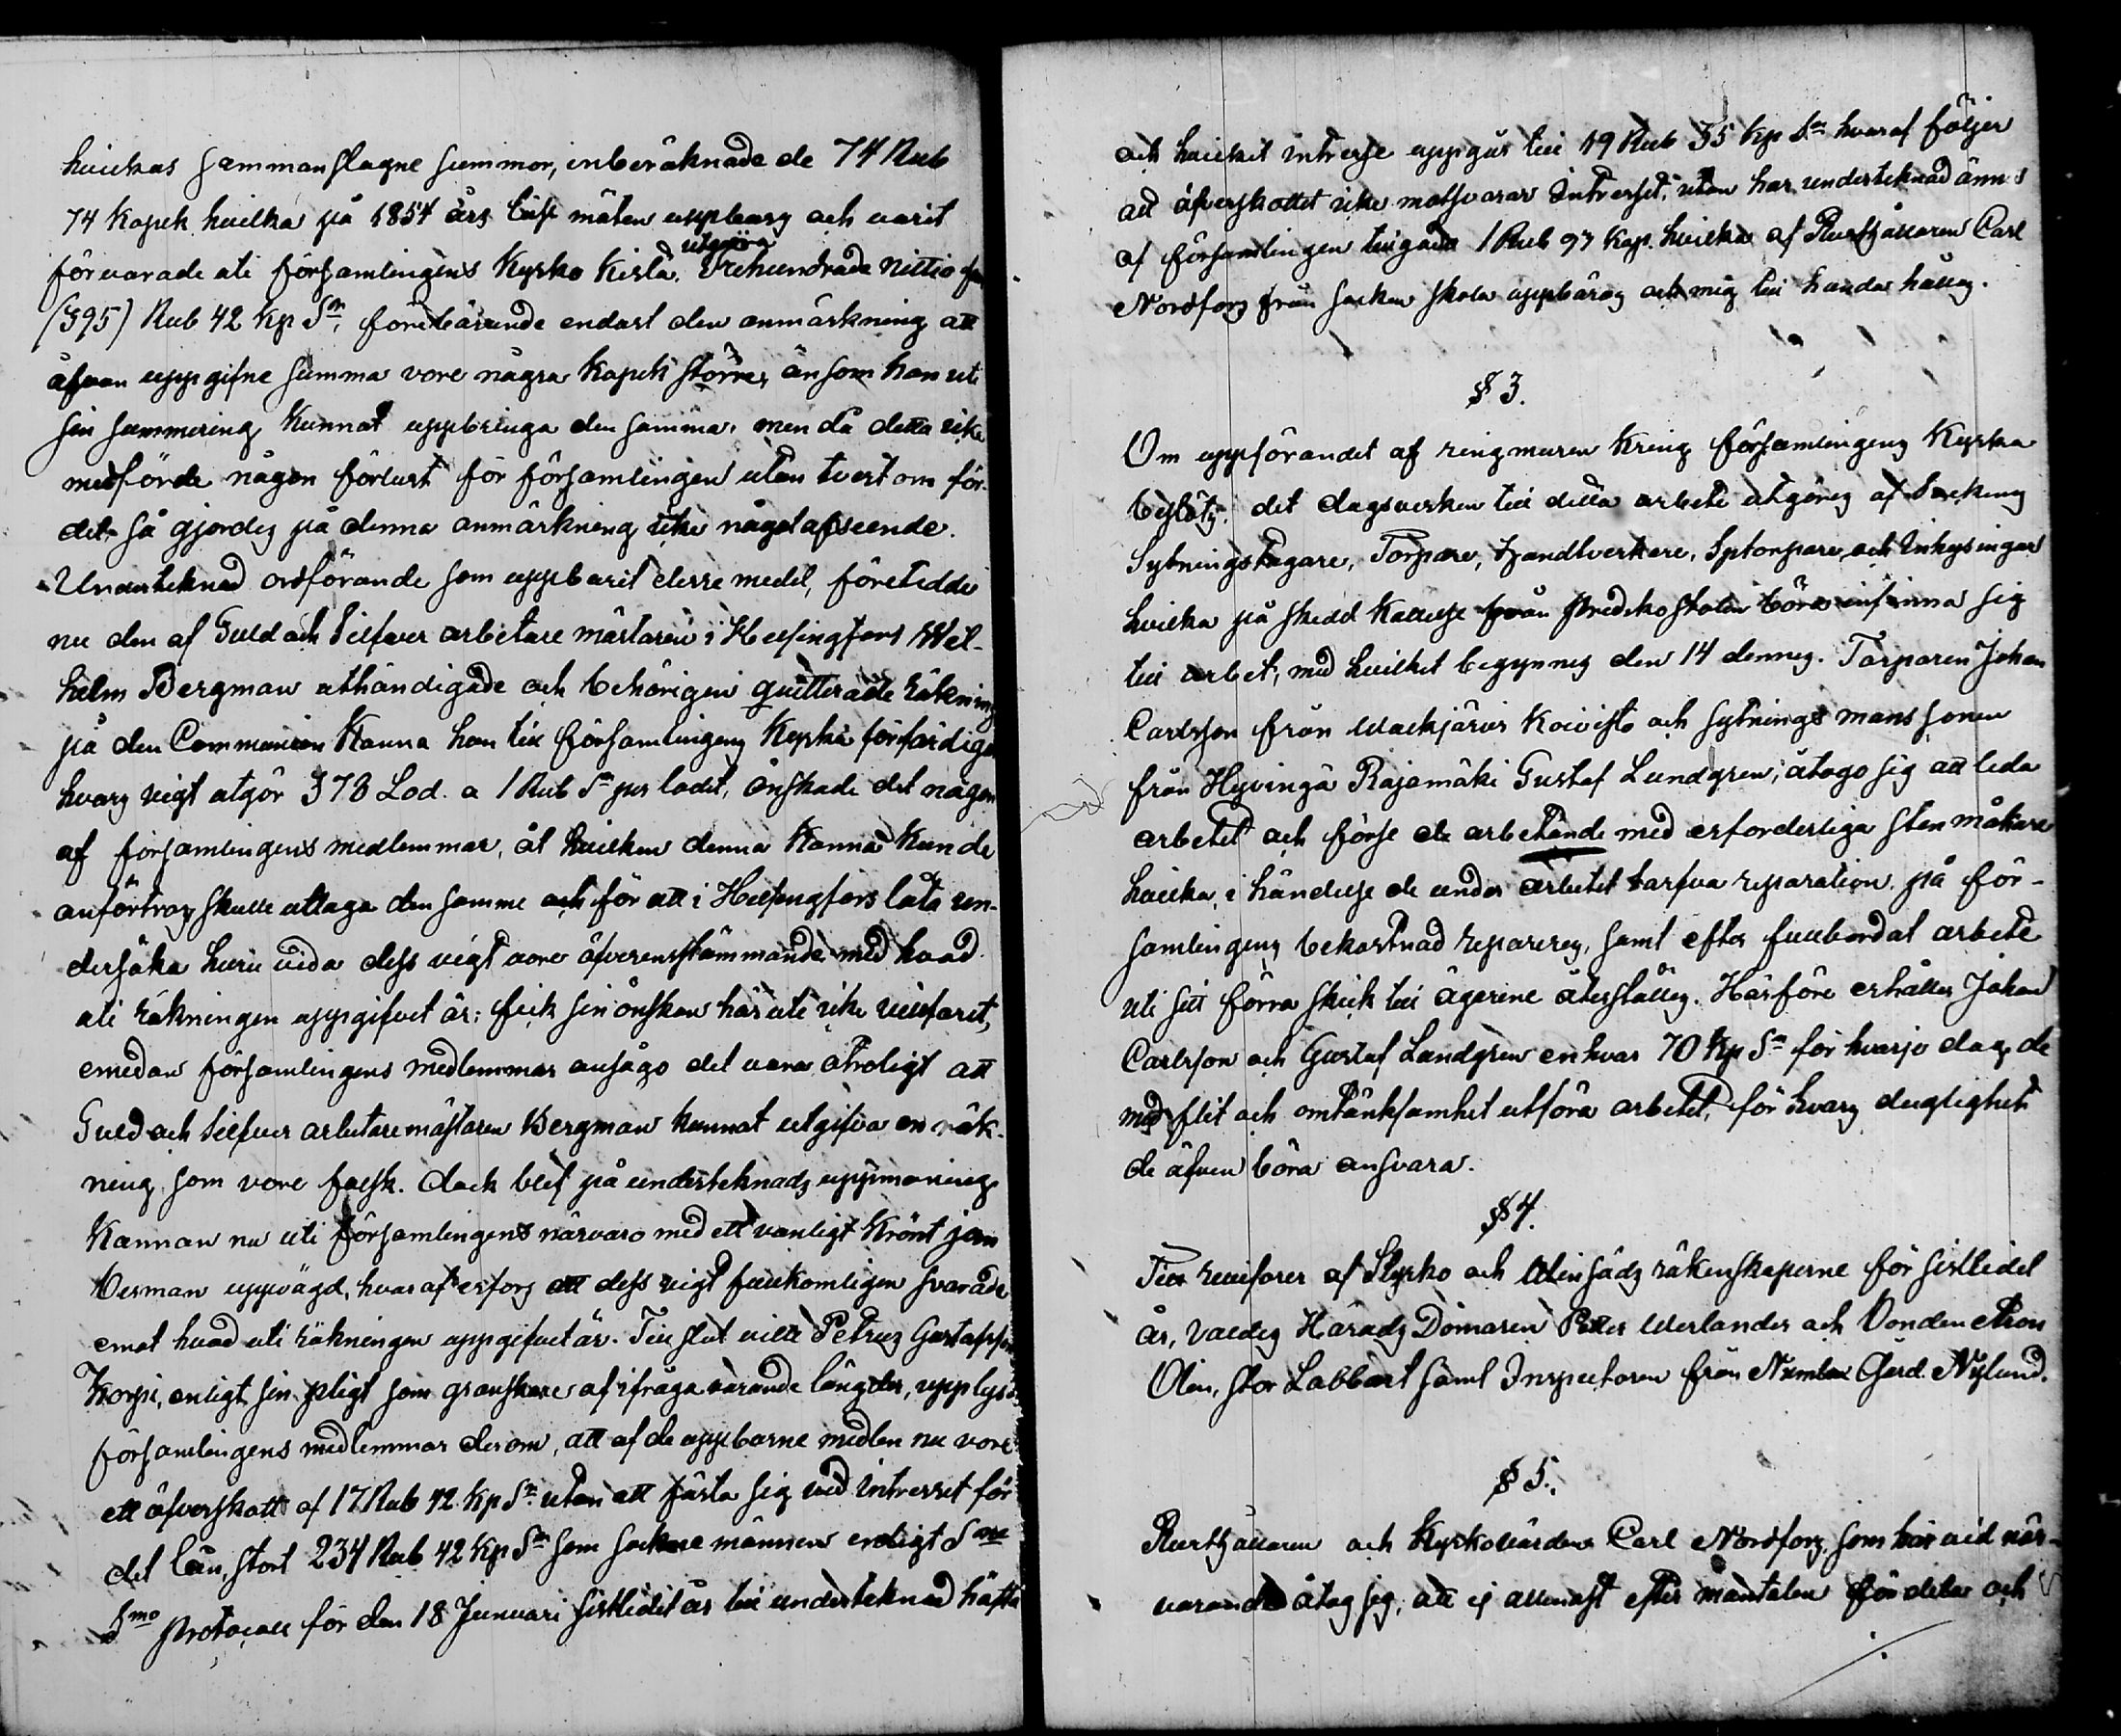 hvilkas sammanslagne summor, inberäknade de 74 Rub
74 Kopek hvilka på 1854 års Luse möten uppbarg och varit
förvarade uti församlingens Kyrko Kista, utgöra Trehundrade Nittio fem
(395) Rub 42 Kp Sm, förebärande endast den anmärkning att
åfvan uppgifne summa vore några Kopek större, än som han uti
sin summering kunnat uppbringa den samma, men då detta icke
medförde någon förlust för församlingen utan tvert om för-
del, så gjordes på denna anmärkning icke något afseende.
Undertecknad ordförande som uppburit desse medel, företedde
nu den af Guld och Silfver arbetare mästaren i Helsingfors Wil-
helm Bergman uthändigade och behörigen quitterade räkning
på den Communion Kanna han till församlingens Kyrka förfärdigat
hvars vigt utgör 378 Lod. a 1 Rub Sm per lodet, önskade det någon
af församlingens medlemmar, åt hvilken denna Kanna kunde
anförtros skulle uttaga den samme och för att i Helsingfors låta un-
dersöka huru vida dess vigt vore öfverensstämmande med hvad
uti räkningen uppgifvet är; fick sin önskan här uti icke villfarit,
emedan församlingens medlemmar ansågo det vara otroligt att
Guld och Silfver arbetaremästaren Bergman kunnat utgifva en räk-
ning som vore falsk. dock blef på undertecknads uppmaning
Kannan nu uti församlingens närvaro med ett vanligt Krönt jern
besman uppvägd, hvaraf erfors att dess vigt fullkomligen svarade
emot hvad uti räkningen uppgifvet är. Till slut ville Petrus Gustafsson
Korpi, enligt sin pligt som granskare af ifrågavarande längder, upplysa
församlingens medlemmar derom, att af de uppburne medlen nu vore
ett öfverskott af 17 Rub 42 Kp Sm utan att fästa sig vid intresset för
det lån, stort 234 Rub 42 Kp Sm som sockne männen enligt §
Protocoll för den 18 Januari sistlidet år till undertecknad häfta
och hvilket intresse uppgår till 19 Rub 35 Kp Sm hvaraf följer
att öfverskottet icke motsvarar Intresset, utan har undertecknad ännu
af församlingen tillgoda 1 Rub 97 Kop. hvilka af Rusthållaren Carl
Nordfors från socken skola uppbäras och mig till handa hållas.
§ 3.
Om uppförandet af ringmuren kring församlingens Kyrka
beslöts: det dagsverken till detta arbete utgöres af Sockens
Sytningstagare, Torpare, Handtverkare, Sytorpare och Inhysingar
hvilka på skedd Kallelse från Predikostolen böra infinna sig
till arbet, med hvilket begynnes den 14 dennes. Torparen Johan
Carlsson från Wackjärvi Koivisto och sytnings mans sonen
från Hyvingä Rajamäki Gustaf Lundgren, åtogo sig att leda
arbetet och förse de arbetande med erforderliga sten
hvilka, i händelse de under arbetet tarfva reparation, på för-
samlingens bekostnad repareres, samt efter fullbordat arbete
uti sitt förra skick till ägarene återställes. Härföre erhåller Johan
Carlsson och Gustaf Lundgren enhvar 70 Kp Sm för hvarje dag, de
med flit och omtänksamhet utföra arbetet, för hvars duglighet
de äfven böra ansvara.
§ 4.
Till revisorer af Kyrko och räkenskaperne för sistlidet
år, valdes Härads Domaren Petter Werlander och Bonden
Olin, Stor Labbart samt Inspectoren från Numlax Gerd. Nylund.
§ 5.
Rusthållaren och Kyrkovärden Carl Nordfors, som här vid när-
varande åtog sig, att ej allenast efter mantalen fördela och